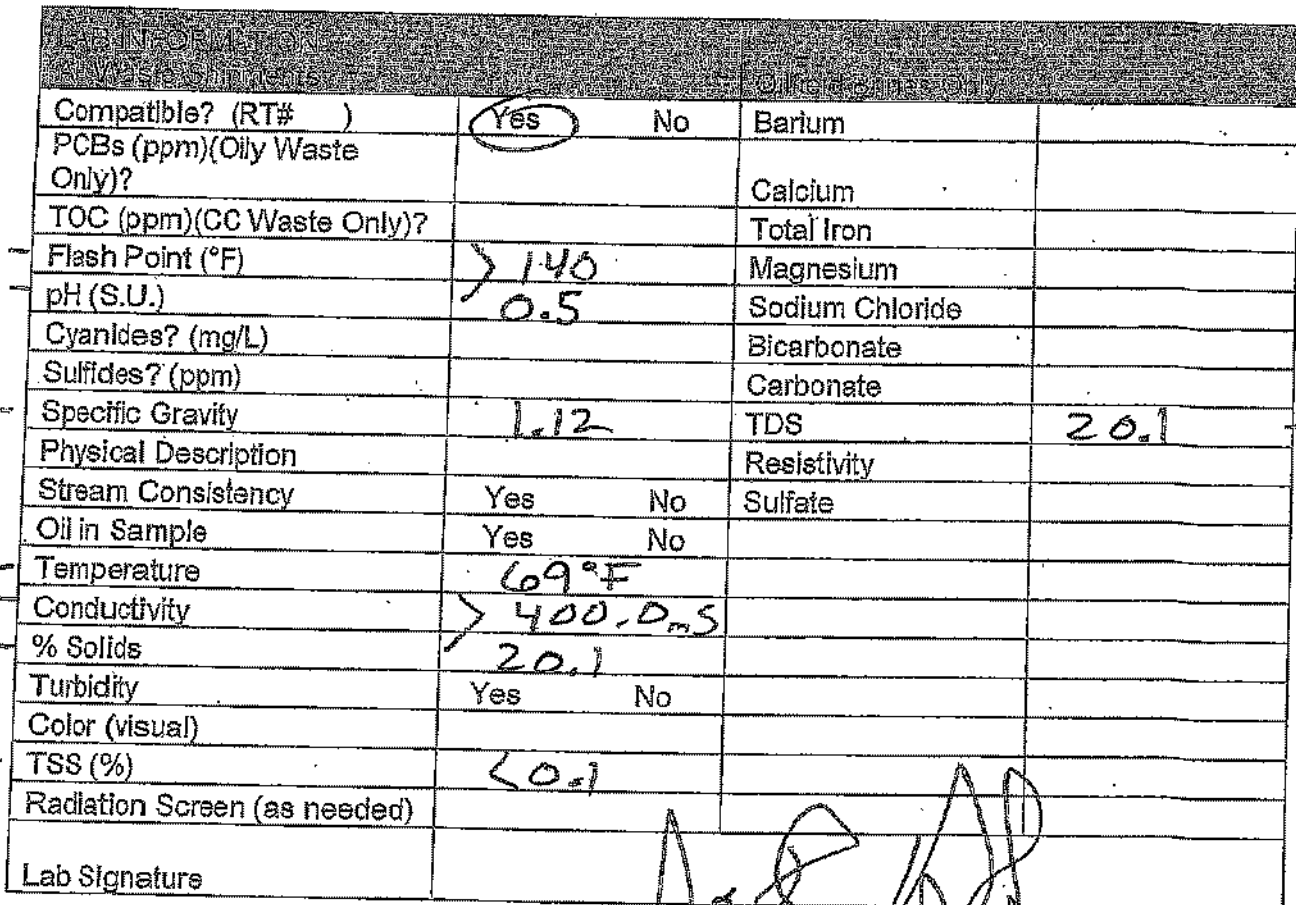 LAB INFORMATION
All Waste Shipments Oilfield Brines Only
Compatible? (RT# ) Yes No Barium
PCBs (ppm)(Oily Waste
Only)? Calcium
TOC (ppm)(CC Waste Only)? Total Iron
Flash Point (°F) > 140 Magnesium
pH (S.U.) 0.5 Sodium Chloride
Cyanides? (mg/L) Bicarbonate
Sulfides? (ppm) Carbonate
Specific Gravity 1.12 TDS 20.1
Physical Description Resistivity
Stream Consistency Yes No Sulfate
Oil in Sample Yes No
Temperature 69°F
Conductivity > 400.0mS
% Solids 20.1
Turbidity Yes No
Color (visual)
TSS (%) <0.1
Radiation Screen (as needed)
Lab Signature